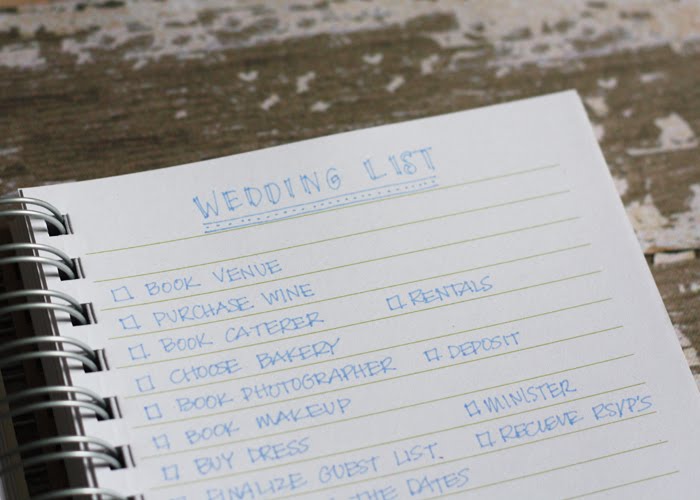 WEDDING LIST
BOOK VENUE
PURCHASE WINE
BOOK CATERER
RENTALS
CHOOSE BAKERY
BOOK PHOTOGRAPHER
DEPOSIT
BOOK MAKEUP
MINISTER
BUY DRESS
RECIEVE RSVP'S
FINALIZE GUEST LIST.
THE DATES